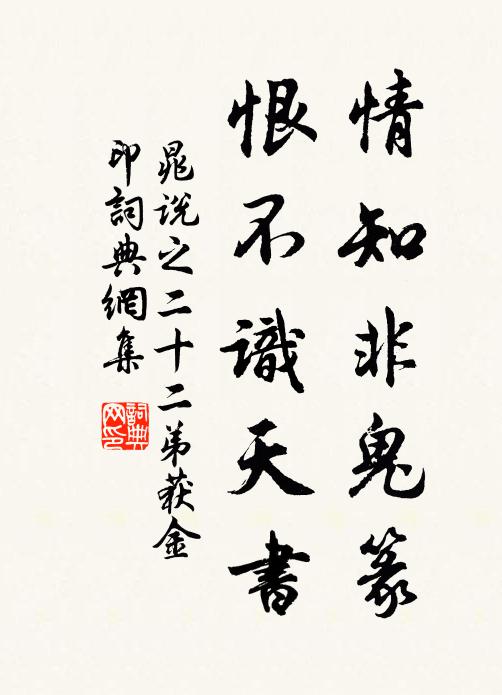 情知非鬼篆
恨不識天書
晁说之二十二弟获金
印詞典網集
詞典网印